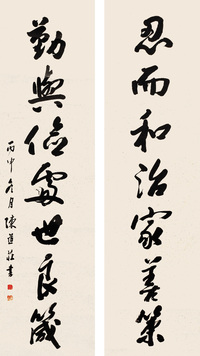 忍而和治家善策
勤與儉處世良箴
丙申冬月陳道莊書